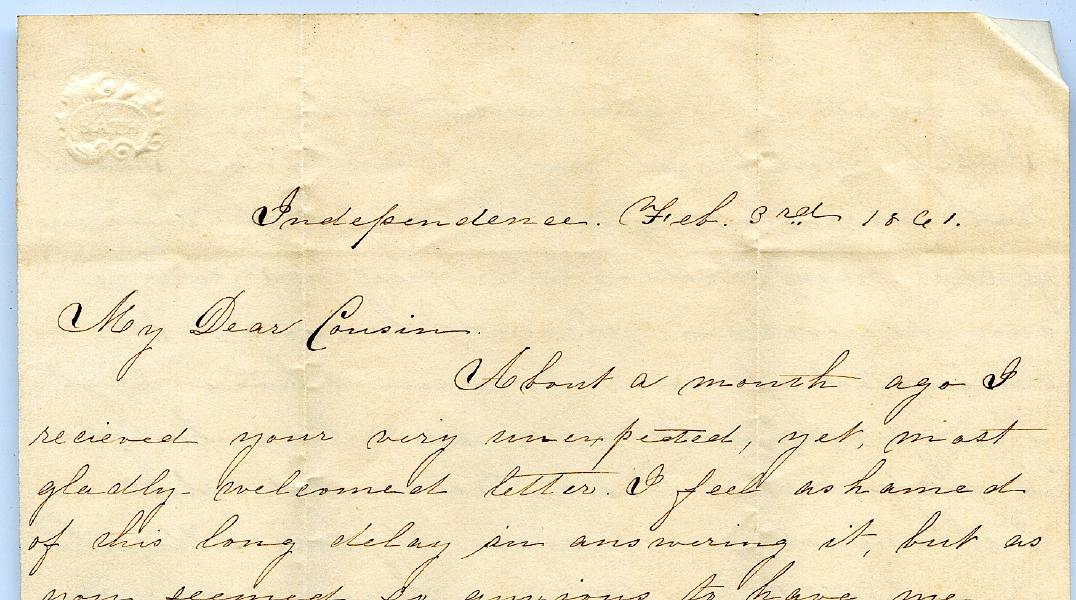 Independence. Feb. 3rd 1861.
My Dear Cousin.
About a month ago I
recieved your very unexpected, yet, most
gladly welcomed letter. I feel ashamed
of this long delay in answering it, but as
you seemed so anxious to have me